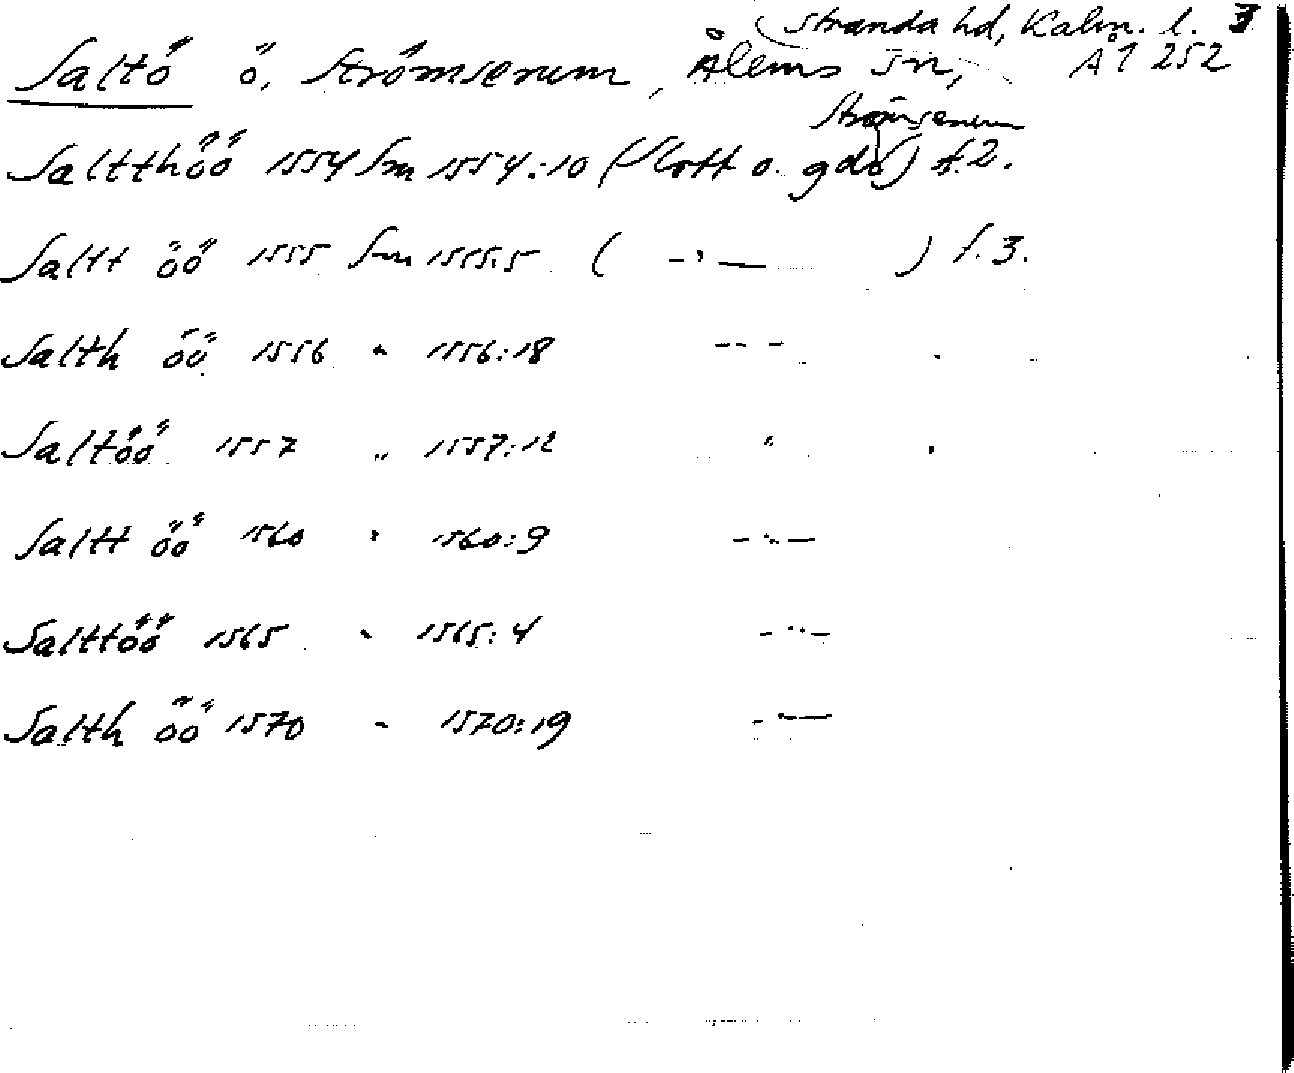 Stranda hd, Kalm. l. 3
Saltö ö, Strömserum, Ålems sn, Å1 252
Strömserum
Saltthöö 1554 Sm 1554:10 (Slott o. gdo) f.2.
Saltt öö 1555 Sm 1555:5 ( -"- ) f.3.
Salth öö 1556 " 1556:18 -"-
Saltöö 1557 " 1557:12 "
Saltt öö 1560 " 1560:9 -"-
Salttöö 1565 " 1565:4 -"-
Salth öö 1570 " 1570:19 -"-